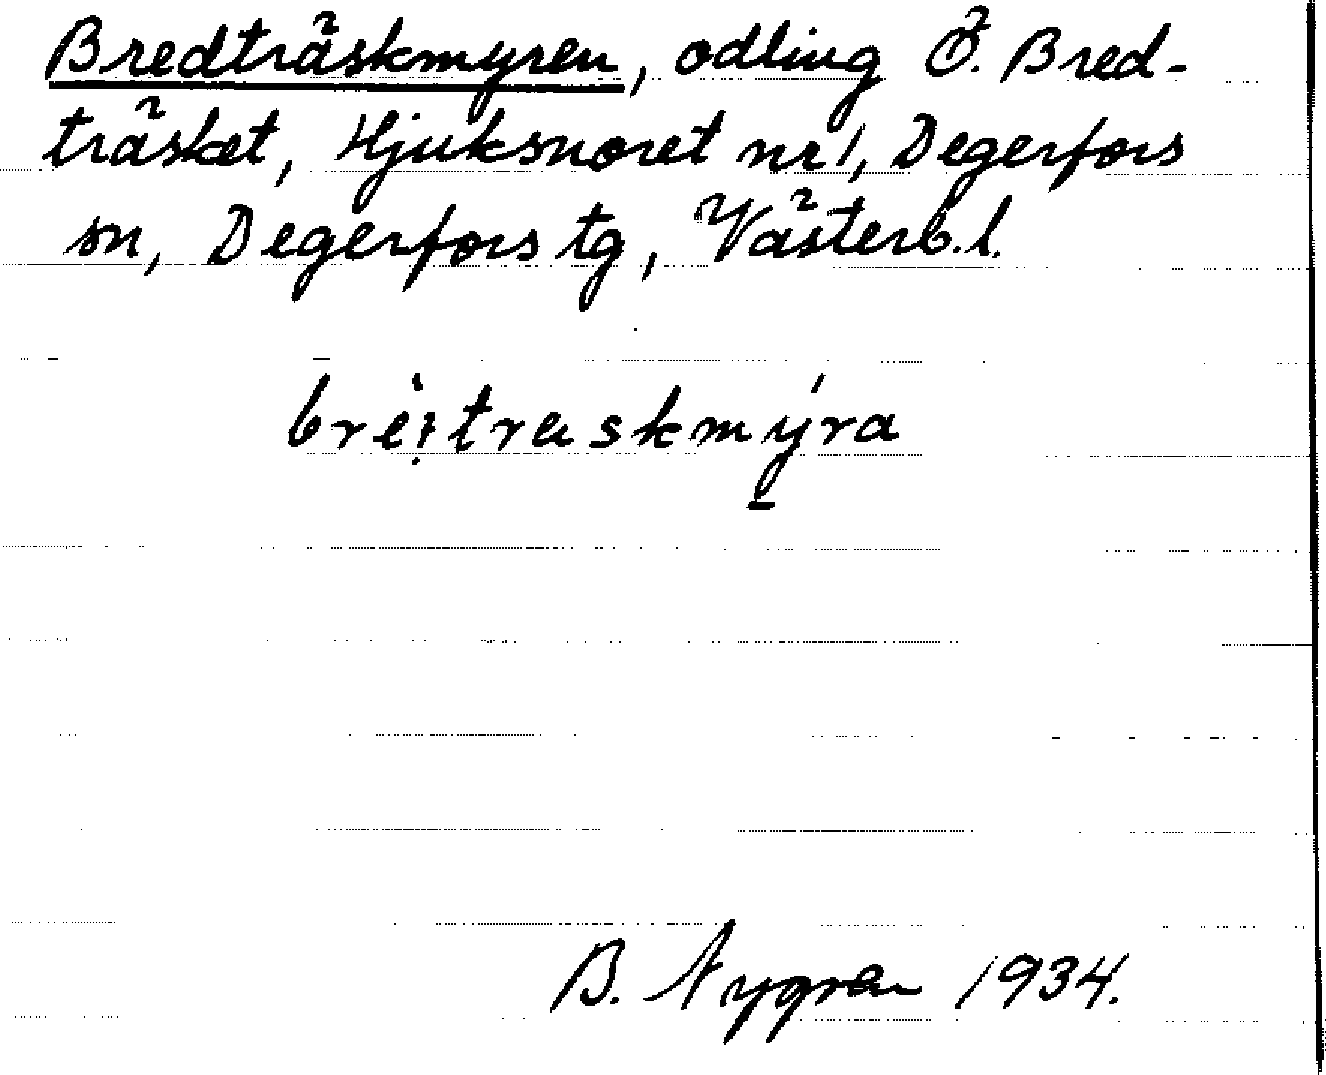 Bredträskmyren, odling Ö. Bred-
träsket, Hjuksnoret nr 1, Degerfors
sn, Degerfors tg, Västerb. l.
breitraskmýra
B. Nygren 1934.